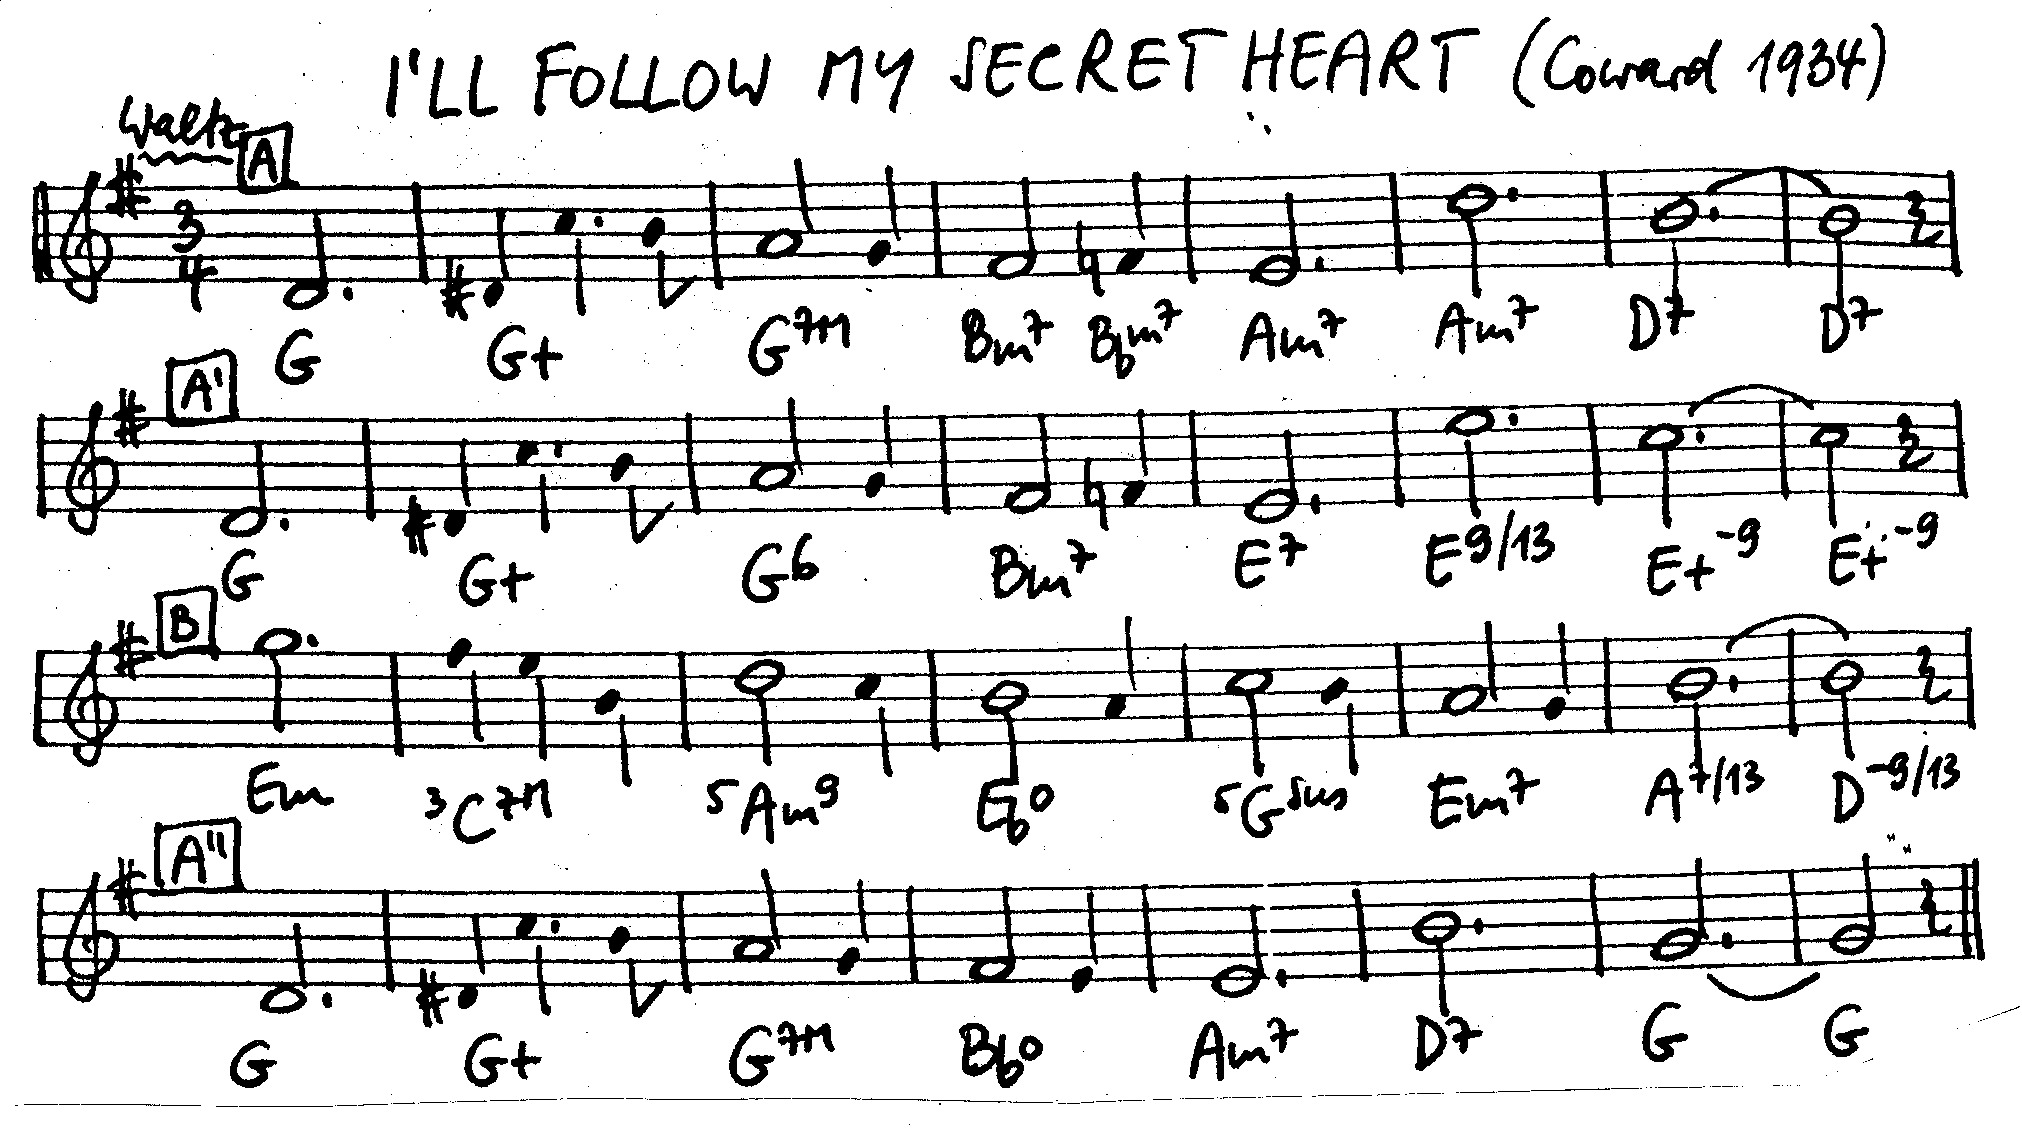 I'LL FOLLOW MY SECRET HEART (Coward 1934)
Waltz
A
3
4
G G+ G7M Bm7 Bbm7 Am7 Am7 D7 D7
A'
G G+ G6 Bm7 E7 E9/13 E+-9 E+-9
B
Em 3C7M 5Am9 Eb0 5Gsus Em7 A7/13 D-9/13
A"
G G+ G7M Bb0 Am7 D7 G G